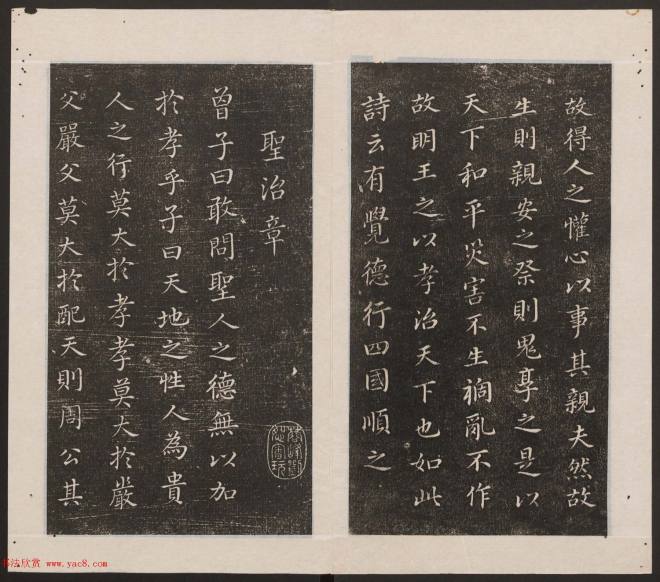 故得人之懽心以事其親夫然故
生則親安之祭則鬼享之是以
天下和平災害不生禍亂不作
故明王之以孝治天下也如此
詩云有覺德行四國順之
聖治章
曾子曰敢問聖人之德無以加
於孝乎子曰天地之性人為貴
人之行莫大於孝孝莫大於嚴
父嚴父莫大於配天則周公其
书法欣赏 www.yac8.com